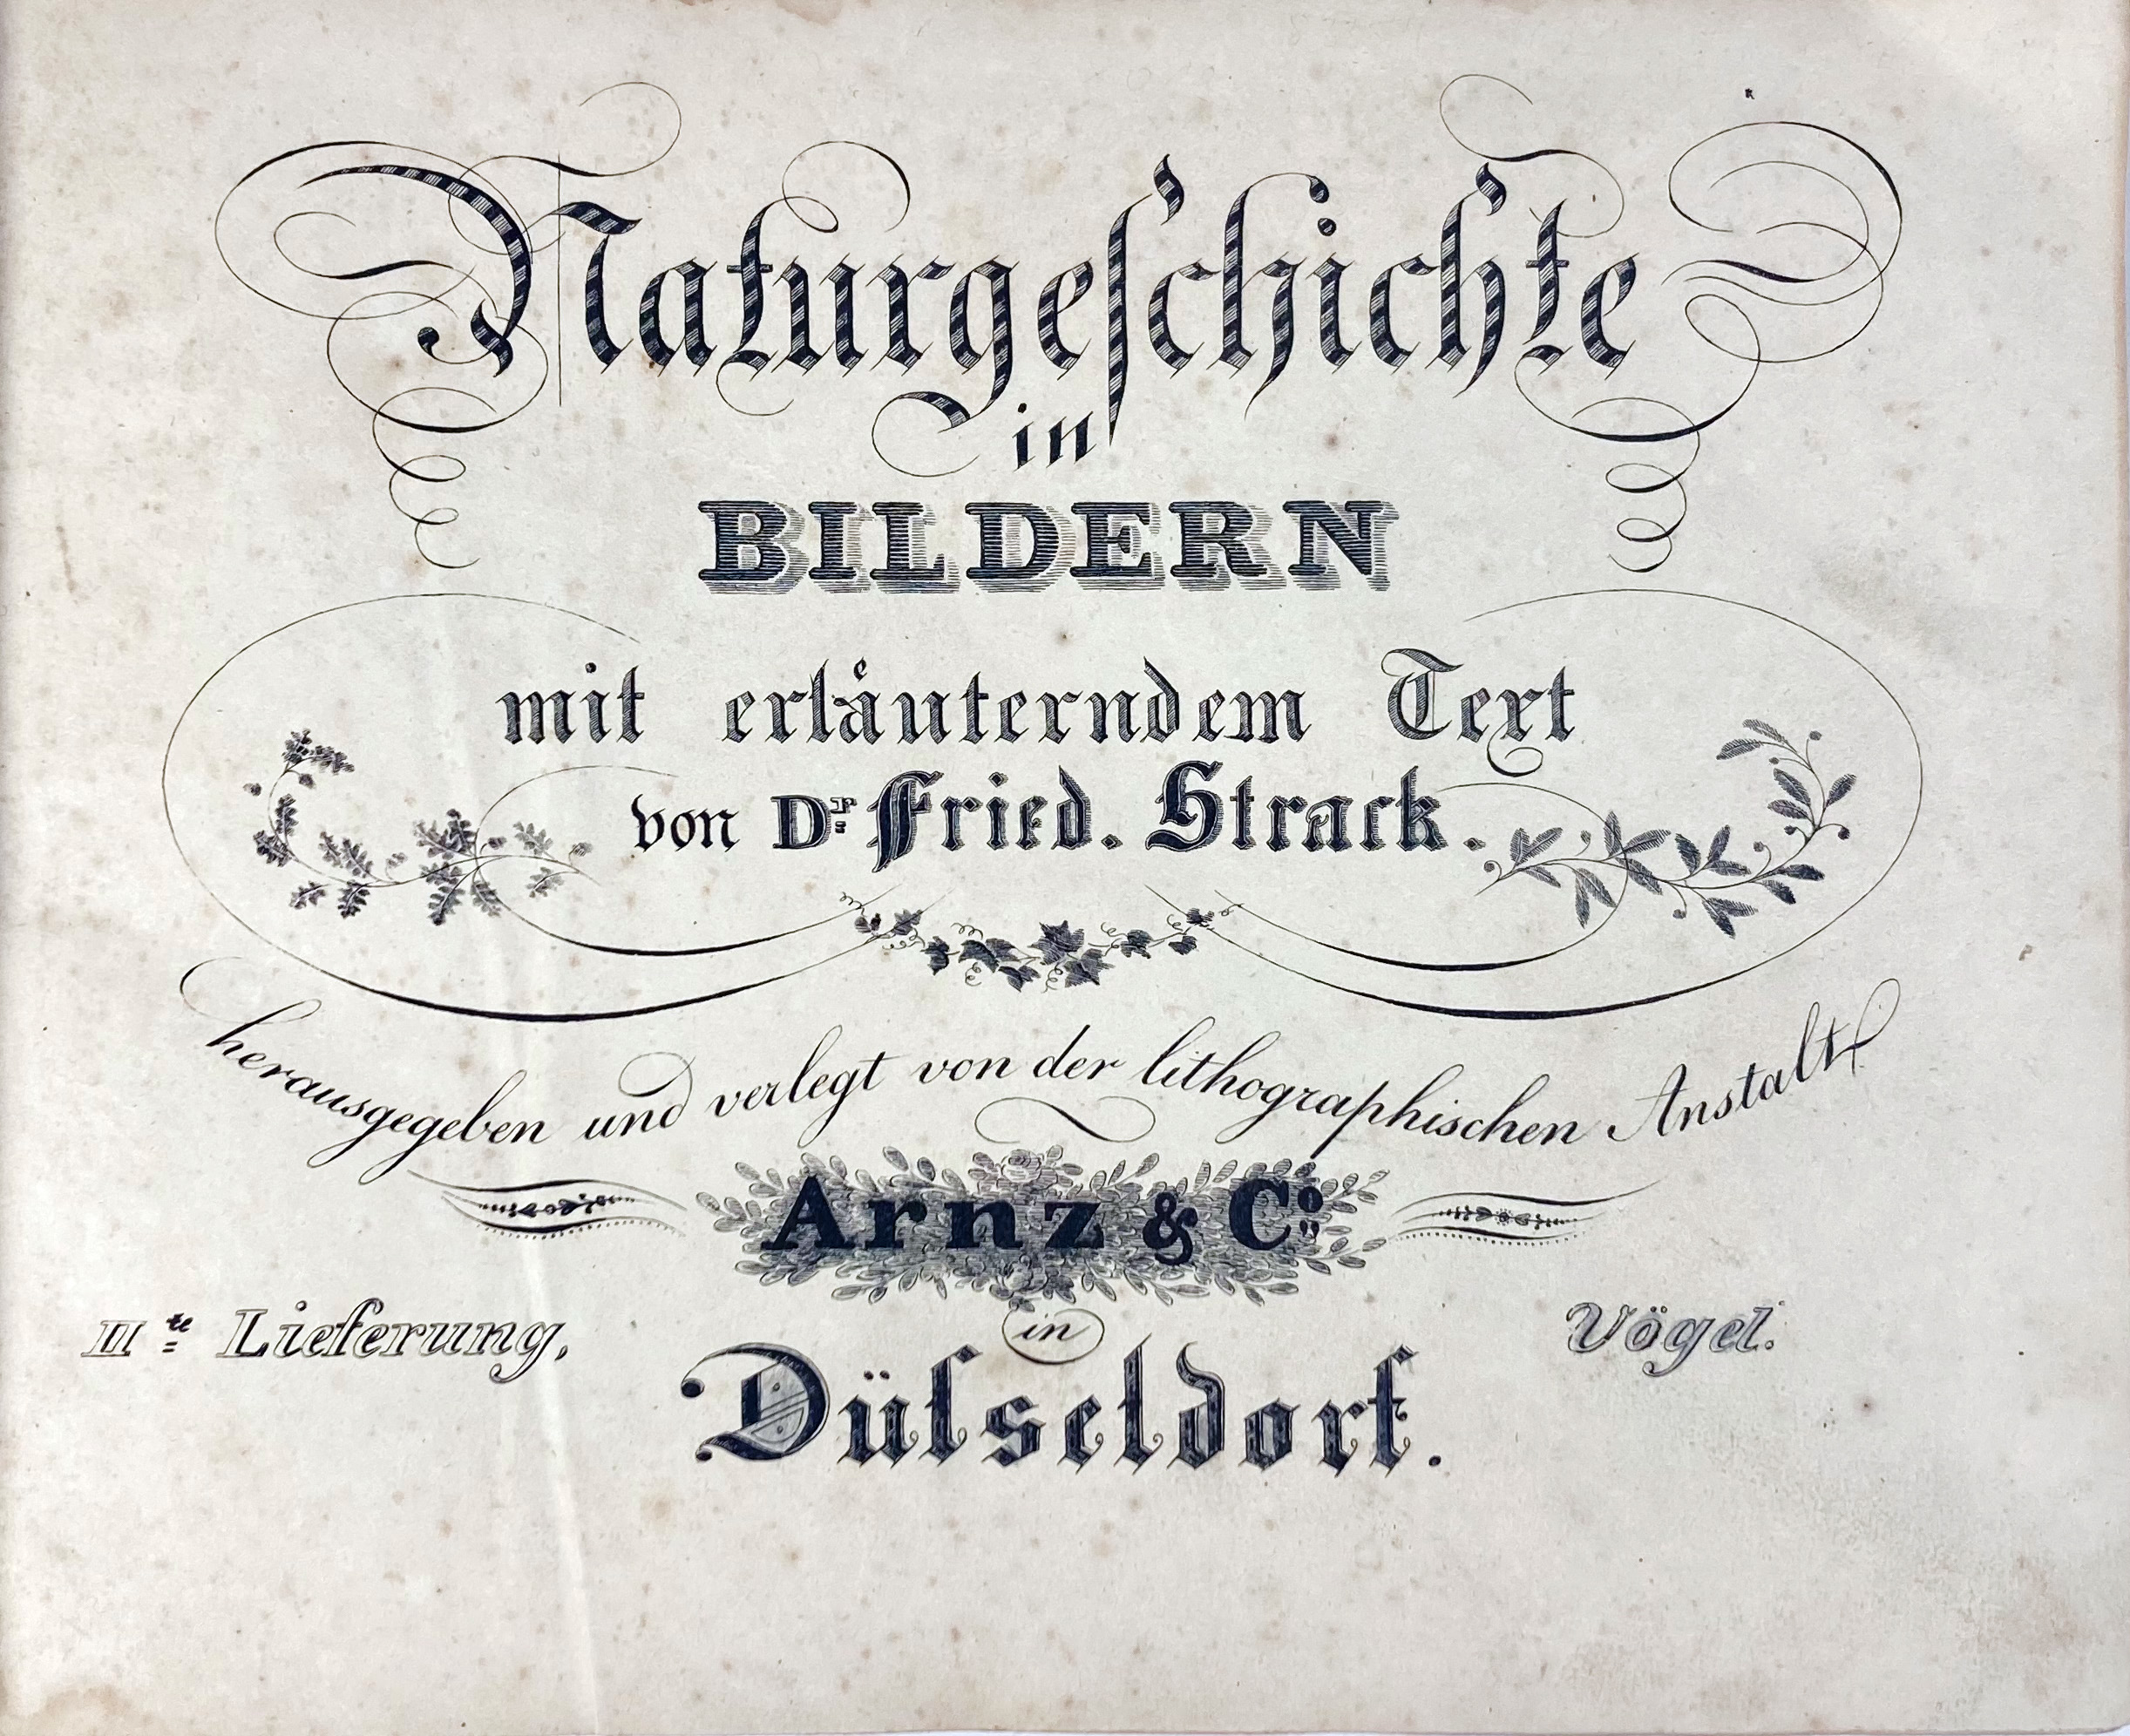 Naturgeſchichte
in
BILDERN
mit erläuterndem Text
von Dr. Fried. Strack.
herausgegeben und verlegt von der lithographischen Anstalt
Arnz & Co.
in
IIte Lieferung,
Vögel.
Düſseldorf.